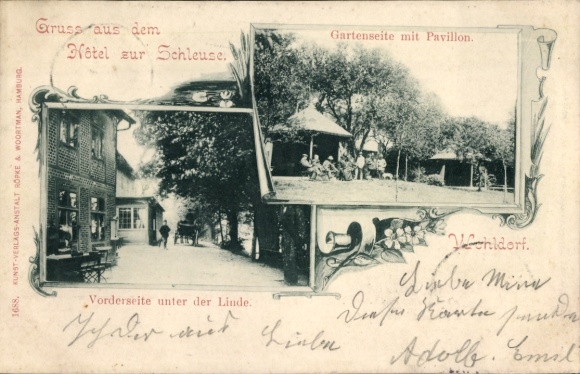 Gruss aus dem
Hôtel zur Schleuse.
Gartenseite mit Pavillon.
Wohldorf.
Vorderseite unter der Linde.
1688. KUNST-VERLAGS-ANSTALT RÖPKE & WOORTMAN, HAMBURG.
Liebe Mina
Diese Karte sendet
Adolb. Emil
Ich Der aus Liebe